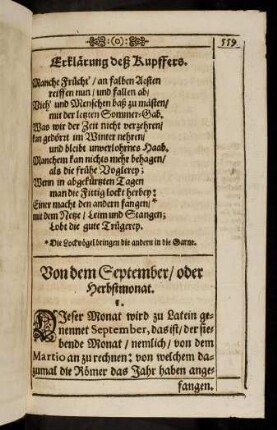 :(o):
559
Erklärung deß Kupffers.
Manche Frücht'/ an falben Aesten
reiffen nun/ und fallen ab/
Vieh' und Menschen baß zu mästen/
mit der letzten Sommer-Gab.
Was wir der Zeit nicht verzehren/
kan gedörrt im Winter nehren/
und bleibt unverlohrnes Haab.
Manchem kan nichts mehr behagen/
als die frühe Voglerey;
Wenn in abgekürtzten Tagen
man die Fittig lockt herbey:
Einer macht den andern fangen/*
mit dem Netze/ Leim und Stangen;
Lobt die gute Trügerey.
* Die Lockvögel bringen die andern in die Garne.
Von dem September/ oder
Herbstmonat.
1.
DIeser Monat wird zu Latein ge-
nennet September, das ist/ der sie-
bende Monat/ nemlich/ von dem
Martio an zu rechnen: von welchem da-
zumal die Römer das Jahr haben ange-
fangen.